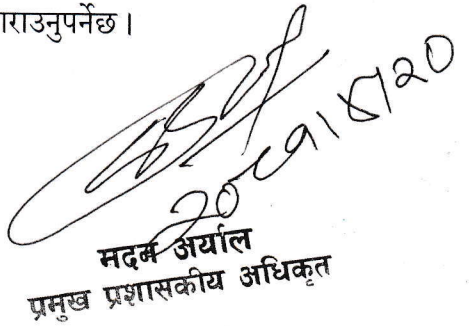 राउनुपर्नेछ।
मदन अर्याल
प्रमुख प्रशासकीय अधिकृत